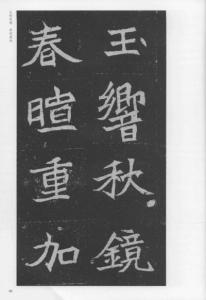 玉響秋鏡
春暄重加